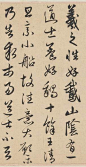 羲之性好鵝山陰有
道士養好鵝十餘王清
旦乘小船故往意大願
乃告求市易道士不